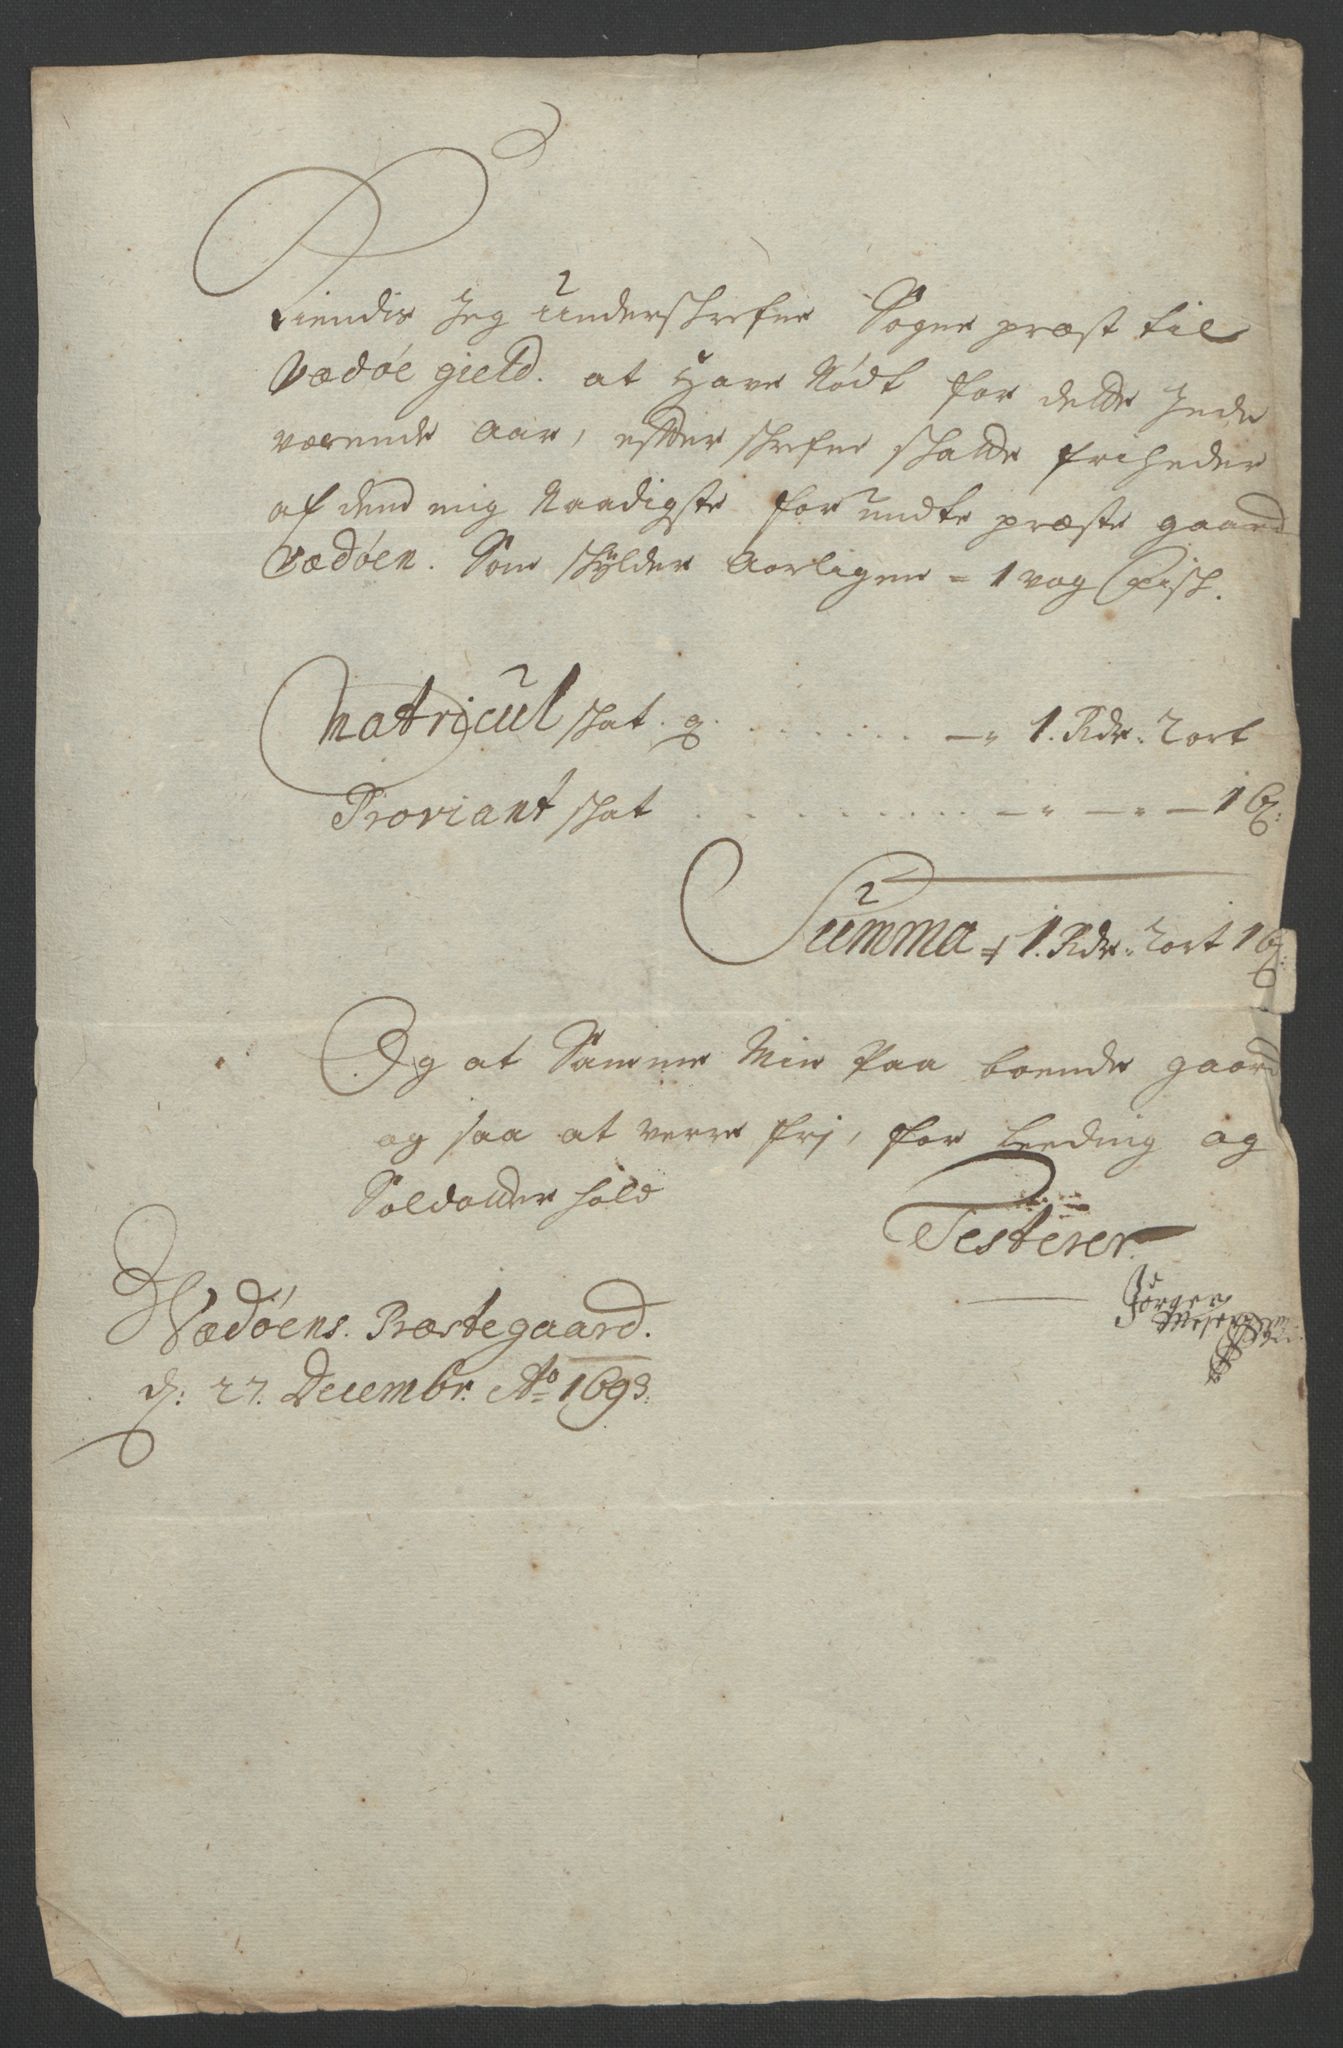 Kiendis Jeg Underschrefne Sogne præst til
Vædøe gield. at Have Nødt for dette Inde
værende Aar, efftter schrefne schatte friheder
af dend mig Naadigste for undte præste gaard
Vædøen. Som schÿlder Aarligen = 1 vog Fisch.
Matricul schat. 9. — " 1. Rdr. 2 ort
Proviant schat — " — " — 16 ß:
Summa + 1. Rdr. 2 ort 16 ß:
Og at Samme Min Paa boende gaard
og saa at verre fri, for Leeding og
Soldatter hold
Testerer
Jørgen
Wædøens. Præstegaard.
d: 27. Decembr. Ao 1693.